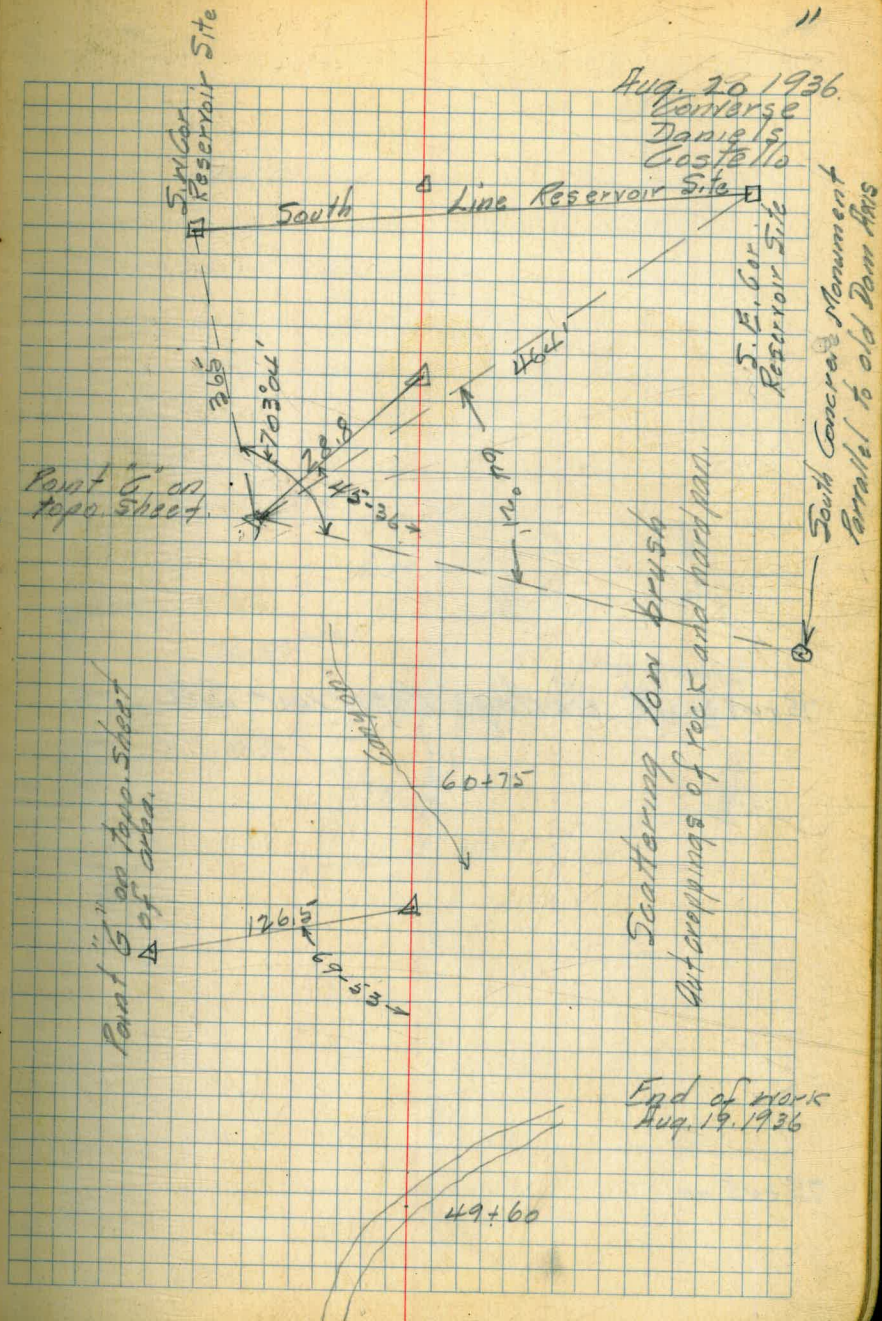 11
Aug. 20 1936.
Converse
Daniels
Costello
S.W. Cor.
Reservoir Site
South Line Reservoir Site
S.E. Cor.
Reservoir Site
South Concrete Monument
Parrallel to old Dam Axis
365'
464'
70°304'
28.8
45-36
Point "G" on
topo. Sheet.
Scattering low brush
Outcroppings of rock and hardpan.
60+75
Point "G" on topo. Sheet
of area.
126.5'
69-53
End of work
Aug. 19. 1936
49+60